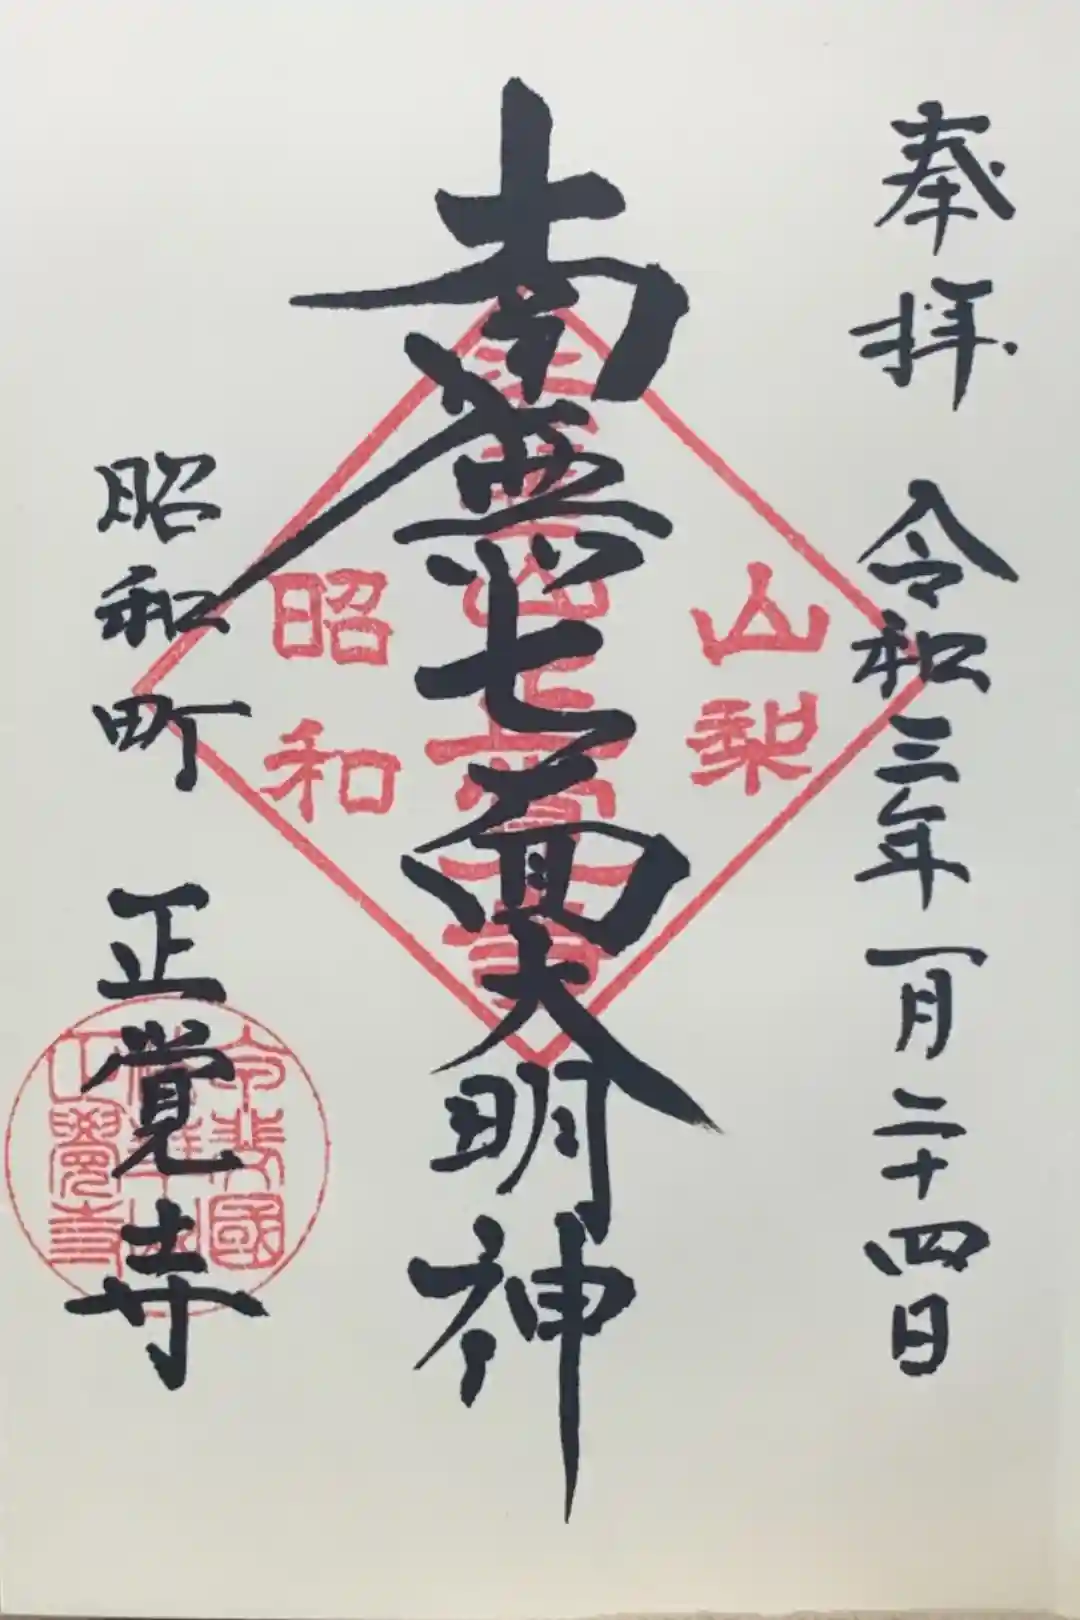 奉拝 令和三年一月二十四日
南無七面大明神
昭和町 正覚寺
山梨
昭和
正覚寺